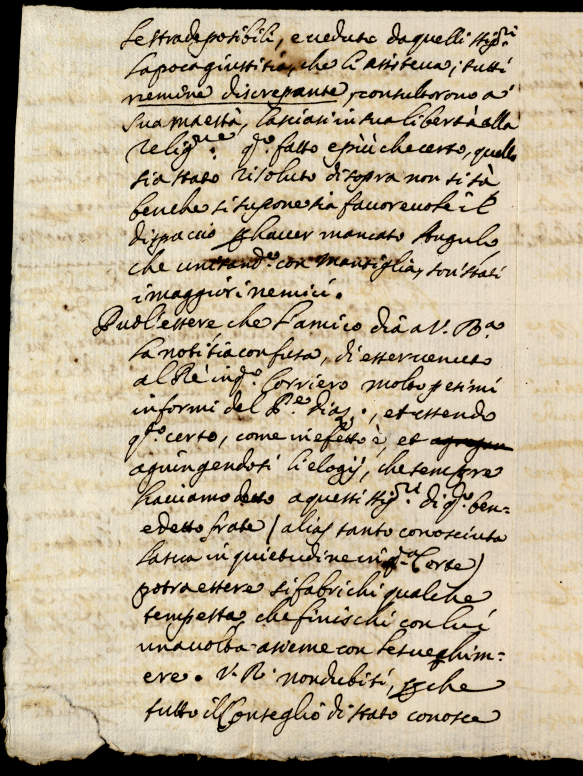 le strade posibili, e veduto da quelli sig.ri
la poca giustitia, che li assisteva; tutti
nemine discrepante, consultorono a
Sua maestà, lasciasi in sua libertà alla
Relig.ne q.o fatto e più che certo, quello
sia stato risoluto di sopra non si sà
benche si supone sia favorevole il
dispaccio p haver mancato Angulo,
che unitand.o con Mansiglia, son stati
i maggiori nemici.
Puol'essere, che l'amico dia a V. R.a
la notitia confusa, di esser venuto
al Rè in q.o Corriero molto pesimi
informi del P.e Dias, et essendo
q.o certo, come in efetto è, et
agiungendosi li elogij, che sempre
haviamo detto a questi sig.ri di q.o ben=
edetto frate (alias tanto conosciuta
la sua inquietudine in q.a Corte)
potra essere si fabrichi qualche
tempesta, che finischi con lui
una volta asieme con le sue chim=
ere. V. R. non dubiti, p che
tutto il Conseglio di stato conosce